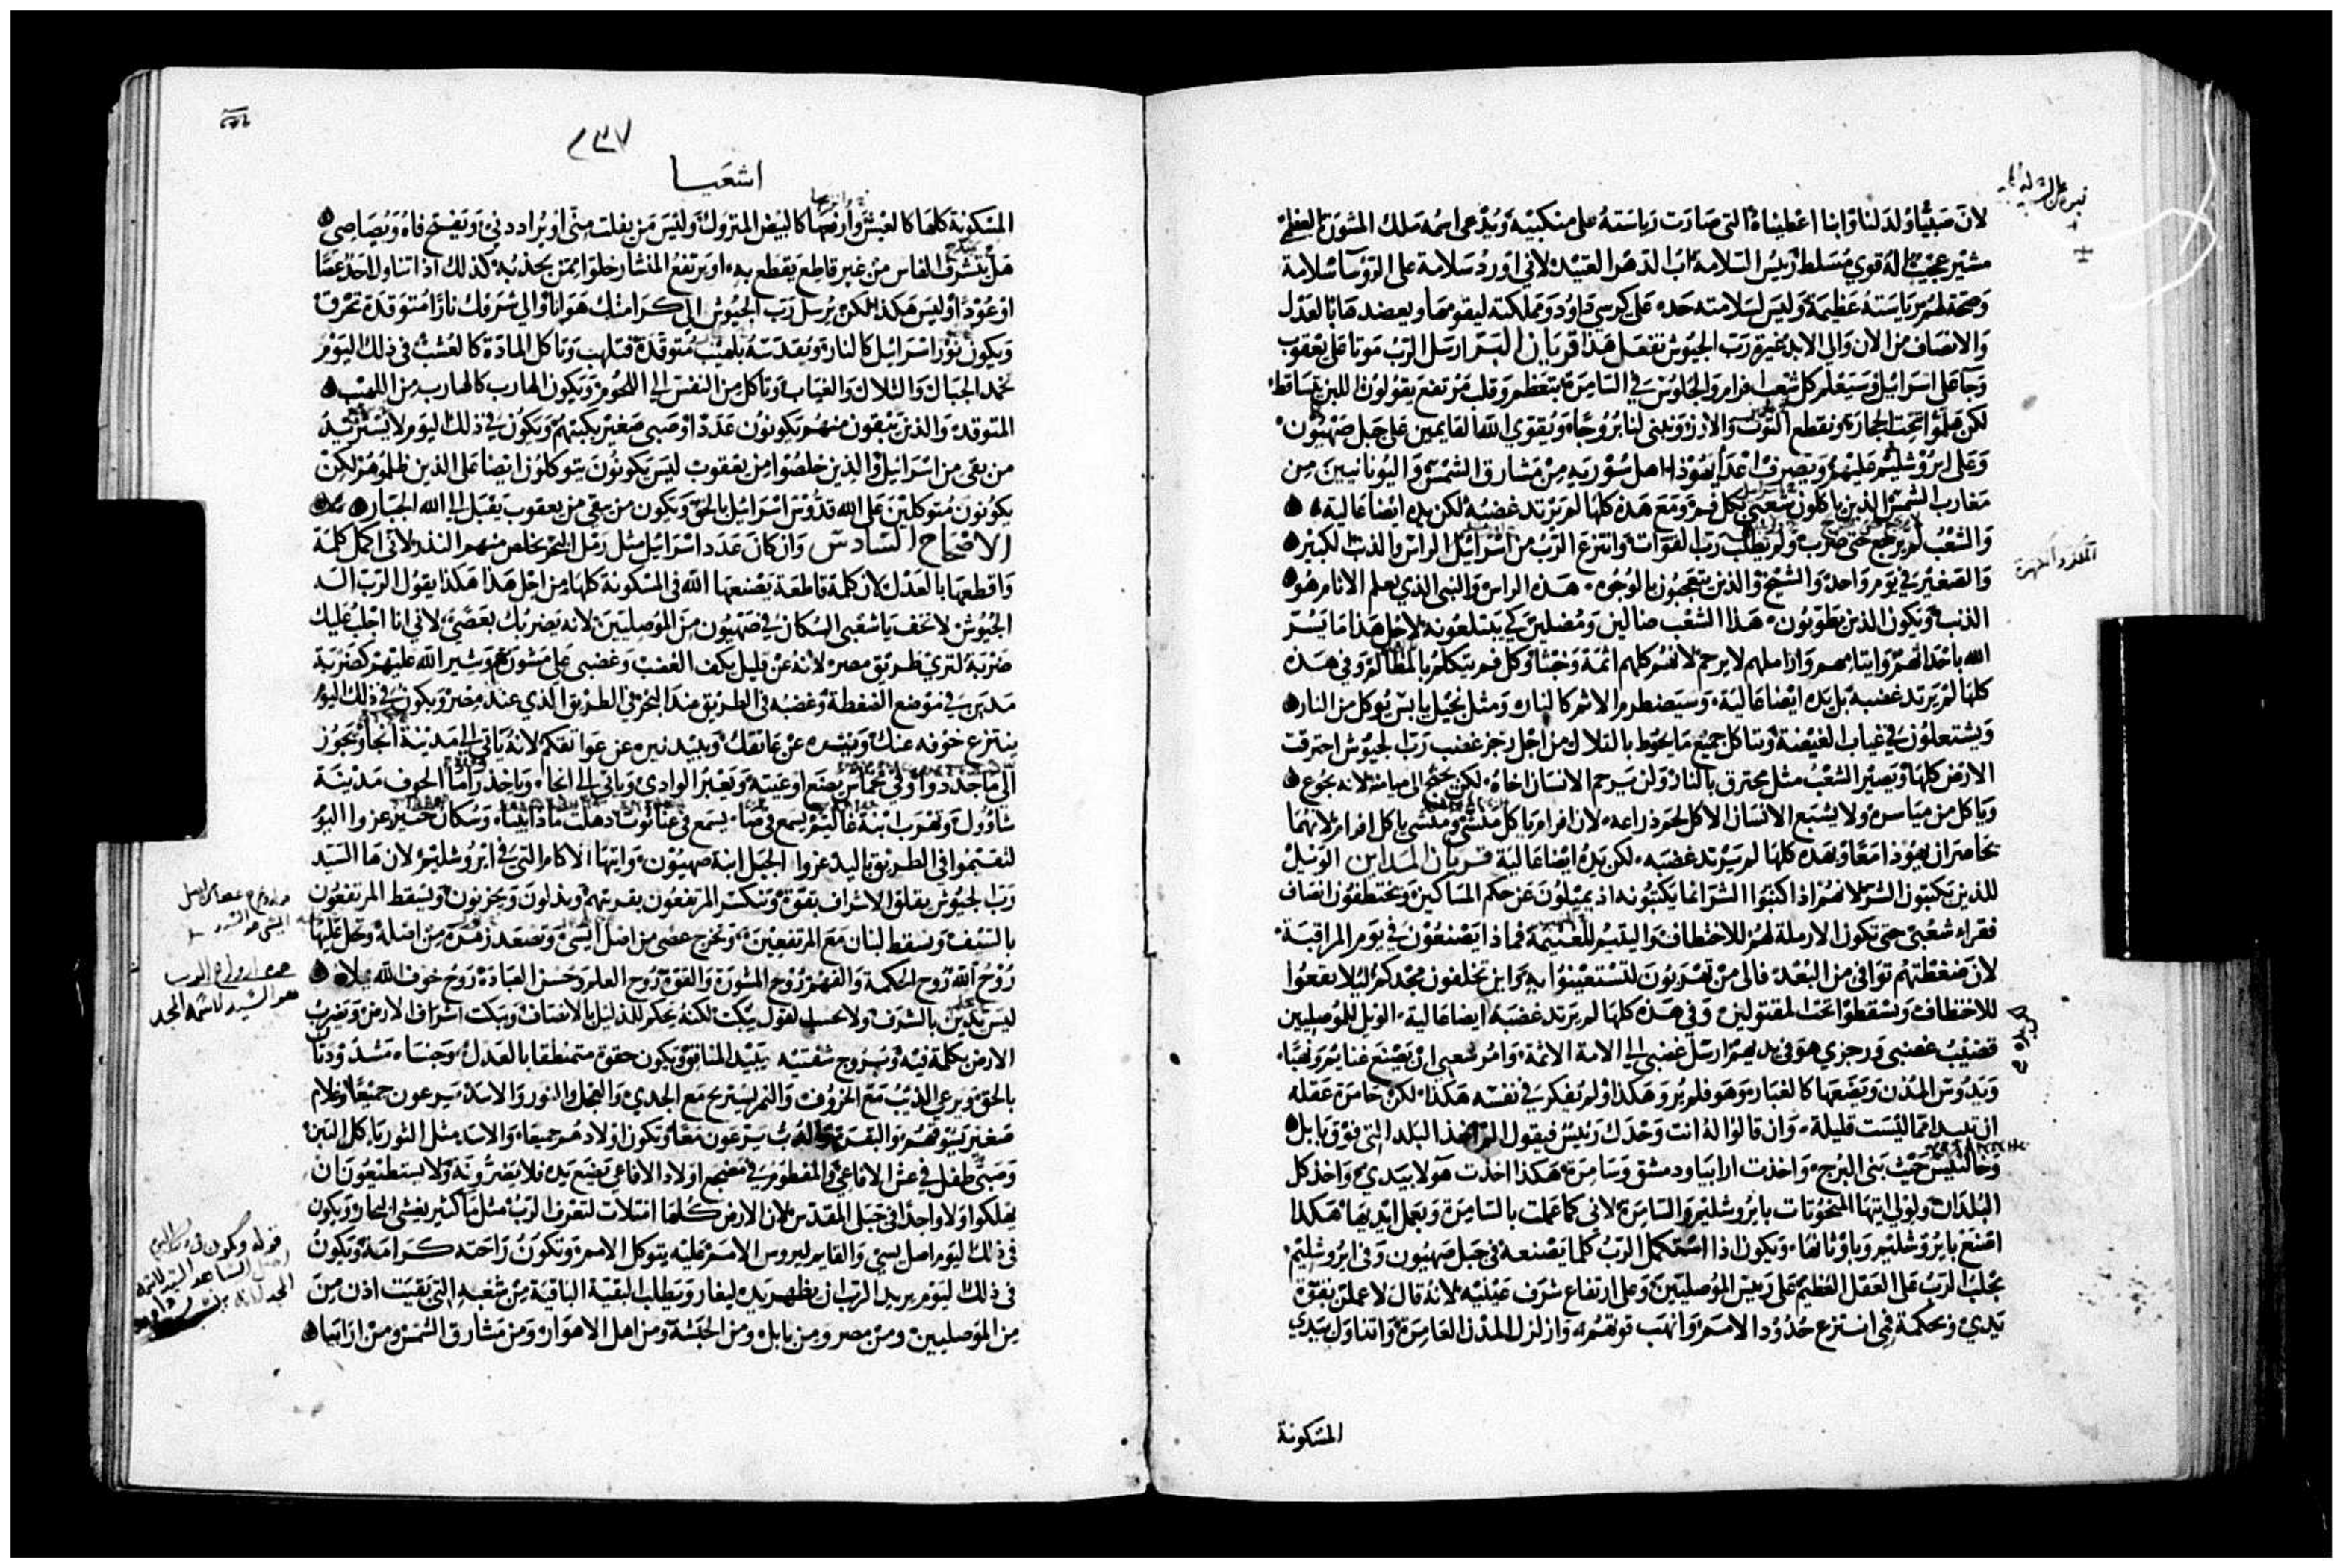 لان صبيًّا ولد لنا وابنا اعطيناه التي صارت رياسته على منكبيه ويدعى اسمه ملك المشورة العظمى
مشير عجيب اله قوي مسلط رييس السلامة اب الدهر العتيد لاني اورد سلامة على الروسا سلامة
وصحة لهم رياسته عظيمة وليس لسلامته حد على كرسي داود ومملكته ليقومها ويعضدها بالعدل
والانصاف من الان والى الابد غيرة رب الجيوش تفعل هذا قربان السر ارسل الرب موتا على يعقوب
وجا على اسرائيل وسيعلم كل شعب افرام والجلوس في السامرة بتعظم وقلب مرتفع يقولون اللبن تساقط
لكن هلموا نحت الحجارة ونقطع التوت والارز ونبني لنا بروجًا ويقوي الله القايمين على جبل صهيون
وعلى ايروشليم عليهم ويصرف اعدا يهوذا اهل سورية من مشارق الشمس واليونانيين من
مغارب الشمس الذين ياكلون شعبي بكل فم ومع هذه كلها لم يرتد غضبه لكن يده ايضا عالية
والشعب لم يرجع حتى ضرب ولم يطلب رب القوات وانتزع الرب من اسرائيل الراس والذنب الكبير
والصغير في يوم واحد والشيخ والذين يتعجبون بالوجوه هذه الراس والنبي الذي يعلم الاثام هو
الذنب ويكون الذين يطوبون هذا الشعب ضالين ومضلين كي يبتلعونه لاجل هذا ما يسر
الله باحداثهم وايتامهم واراملهم لا يرحم لانهم كلهم اثمة وخبثا وكل فم يتكلم بالمظالم وفي هذه
كلها لم يرتد غضبه بل يده ايضا عالية وسيضطرم الاثم كالنار ومثل نجيل يابس يوكل من النار
ويشتعلون في غياب الغيضة وتاكل جميع ما يحوط بالتلال من اجل رجز غضب رب الجيوش احترقت
الارض كلها ويصير الشعب مثل محترق بالنار ولن يرحم الانسان اخاه لكن يجنح الى ميامنه لانه يجوع
وياكل من مياسره ولا يشبع الانسان الاكل لحم ذراعه لان افرام ياكل منشى ومنشى ياكل افرام لانهما
يحاصران يهوذا معًا وبهذه كلها لم يرتد غضبه لكن يده ايضا عالية قربان المداين الويل
للذين يكتبون الشر لانهم اذا كتبوا الشر انما يكتبونه اذ يميلون عن حكم المساكين ويختطفون انصاف
فقراء شعبي حتى تكون الارملة لهم للاختطاف واليتيم للغنيمة فماذا يصنعون في يوم المراقبة
لان ضغطتهم توافي من البعد فالى من تهربون لتستعينوا به واين تخلفون مجدكم ليلا يقعوا
للاختطاف وتسقطوا تحت المقتولين وفي هذه كلها لم يرتد غضبه ايضا عالية الويل للموصليين
قضيب غضبي ورجزي هو في يدهم ارسل غضبي الى الامة الاثمة وامر شعبي ان يصنع غنايم ونهبًا
ويدوس المدن ويضعها كالغبار وهو فلم يرو هكذا ولم تفكر في نفسه هكذا لكن خامرة عقله
ان تبيد امما ليست قليلة وان قالوا له انت وحدك رييس فيقول الم اخذ البلد التي فوق بابل
وخالنيس حيث بنى البرج واخذت ارابيا ودمشق وسامرة هكذا اخذت هولا بيدي واخذ كل
البلدان ولولي ايتها المنحوتات بايروشليم والسامرة لاني كما عملت بالسامرة وبعمل ايديها هكذا
اصنع بايروشليم وباوثانها ويكون اذا استكمل الرب كلما يصنعه في جبل صهيون وفي ايروشليم
يجلب الرب على العقل العظيم على رييس الموصليين وعلى ارتفاع شرف عينيه لانه قال لاعملن بقوة
يدي وبحكمة فهمي انتزع حدود الامم وانهب قوتهم وازلزل المدن العامرة واتناول بيدي
المسكونة
٢٣٧
اشعيا
المسكونة كلها كالعش وارفعها كالبيض المتروك وليس من يفلت مني او يراددني ويفتح فاه ويصاصي
هل يتشرف الفاس من غير قاطع يقطع به او يرتفع المنشار خلوا ممن يجذبه كذلك اذا تناول احد عصا
او عودًا وليس هكذا لكن يرسل رب الجيوش الى كرامتك هوانا والى شرفك نارًا متوقدة تحرق
ويكون نور اسرائيل كالنار ويقدسه بلهيب متوقدة فتلهب وتاكل المادة كالعشب في ذلك اليوم
تخمد الجبال والتلال والغياب وتاكل من النفس الى اللحوم ويكون الهارب كالهارب من اللهيب
المتوقدة والذين يتبقون منهم يكونون عددًا وصبي صغير يكتبهم ويكون في ذلك اليوم لا يسترشد
من بقي من اسرائيل والذين خلصوا من يعقوب ليس يكونون يتوكلون ايضا على الذين ظلموهم لكن
يكونون متوكلين على الله قدوس اسرائيل بالحق ويكون من بقي من يعقوب يقبل الى الله الجبار
الاصحاح السادس وان كان عدد اسرائيل مثل رمل البحر يخلص منهم النذر لاني اكمل كلمة
واقطعها بالعدل لان كلمة قاطعة يصنعها الله في المسكونة كلها من اجل هذا هكذا يقول الرب اله
الجيوش لا تخف يا شعبي السكان في صهيون من الموصليين لانه يضربك بعصى لاني انا اجلب عليك
ضربة لتري طريق مصر لانه عن قليل يكف الغضب وغضبي على مشورتهم ويثير الله عليهم كضربة
مدين في موضع الضغطة وغضبه في الطريق عند البحر في الطريق الذي عند مصر ويكون في ذلك اليوم
ينتزع خوفه عنك ونيره عن عاتقك ويبيد نيره عن عواتقكم لانه ياتي الى مدينة انجا ويجوز
الى ماجددوا وفي مخماس يضع اوعيته ويعبر الوادي وياتي الى انجا وياخذ راما الخوف مدينة
شاوول وتهرب ابنة غاليم يسمع في صا يسمع في عناثوث دهلت مادابينا وسكان جبير عزوا اليوم
لتقيموا في الطريق باليد عزوا الجبل ابنة صهيون وايتها الاكام التي في ايروشليم لان ها السيد
رب الجيوش يقلق الاشراف بقوة وتنكسر المرتفعون بفريتهم ويذلون ويحزنون ويسقط المرتفعون
بالسيف ويسقط لبنان مع المرتفعين وتخرج عصى من اصل ايسى وتصعد زهرة من اصله وتحل عليها
روح الله روح الحكمة والفهم روح المشورة والقوة روح العلم وحسن العبادة روح خوف الله يملاه
ليس يدين بالشرف ولا بحسب القول يبكت لكنه يحكم للذليل بالانصاف ويبكت اشراف الارض ويضرب
الارض بكلمة فيه وبروح شفتيه يبيد المنافق ويكون حقوه متمنطقا بالعدل وجنباه مشدودتان
بالحق ويرعى الذيب مع الخروف والنمر يستريح مع الجدي والعجل والثور والاسد يرعون جميعًا وغلام
صغير يسوقهم والبقرة والدب يرعون معًا وتكون اولادهم جميعا والاسد مثل الثور ياكل التبن
وصبي طفل في عش الافاعي والمفطوم في مضجع اولاد الافاعي تضع يده فلا يضرونه ولا يستطيعون ان
يهلكوا ولا واحدا في جبل المقدس لان الارض كلها امتلات لتعرف الرب مثل ما كثير يغشى البحار ويكون
في ذلك اليوم اصل يسي والقايم ليروس الامم عليه يتوكل الامم وتكون راحته كرامة ويكون
في ذلك اليوم يريد الرب ان يظهر يده ليغار ويطلب البقية الباقية من شعبه التي بقيت اذن من
من الموصليين ومن مصر ومن بابل ومن الحبشة ومن اهل الاهواز ومن مشارق الشمس ومن ارابيا